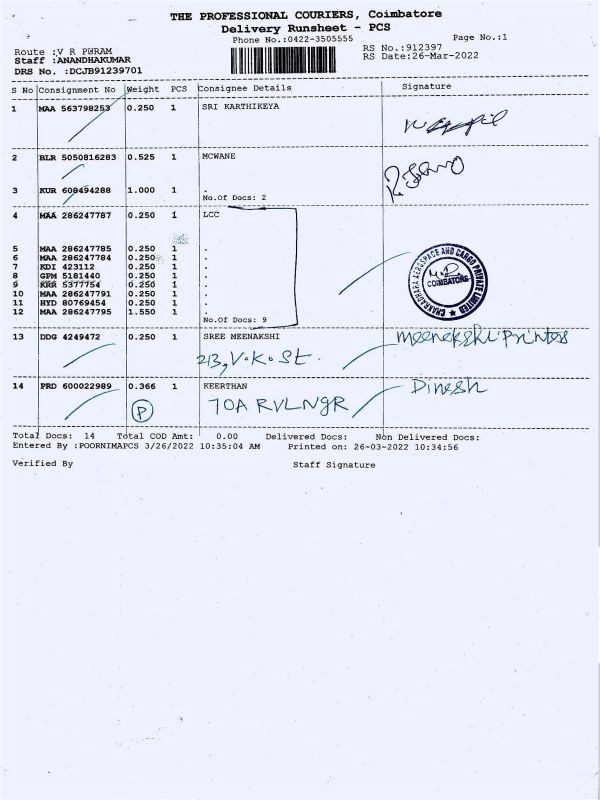 THE PROFESSIONAL COURIERS, Coimbatore
Delivery Runsheet - PCS
Phone No.:0422-3505555 Page No.:1
Route :V R PURAM RS No.:912397
Staff :ANANDHAKUMAR RS Date:26-Mar-2022
DRS No. :DCJB91239701
S No Consignment No Weight PCS Consignee Details Signature
1 MAA 563798253 0.250 1 SRI KARTHIKEYA
2 BLR 5050816283 0.525 1 MCWANE
3 KUR 608494288 1.000 1 .
No.Of Docs: 2
4 MAA 286247787 0.250 1 LCC
5 MAA 286247785 0.250 1 .
6 MAA 286247784 0.250 1 .
7 KDI 423112 0.250 1 .
8 GPM 5181440 0.250 1 .
9 KRR 5377754 0.250 1 .
10 MAA 286247791 0.250 1 .
11 HYD 80769454 0.250 1 .
12 MAA 286247795 1.550 1 .
No.Of Docs: 9
CHAKRADHARA AEROSPACE AND CARGO PRIVATE LIMITED
COIMBATORE
13 DDG 4249472 0.250 1 SREE MEENAKSHI meenakshi Printers
213, V.K.O St.
14 PRD 600022989 0.366 1 KEERTHAN Dinesh
P 70A RVLNgR
Total Docs: 14 Total COD Amt: 0.00 Delivered Docs: Non Delivered Docs:
Entered By :POORNIMAPCS 3/26/2022 10:35:04 AM Printed on: 26-03-2022 10:34:56
Verified By Staff Signature